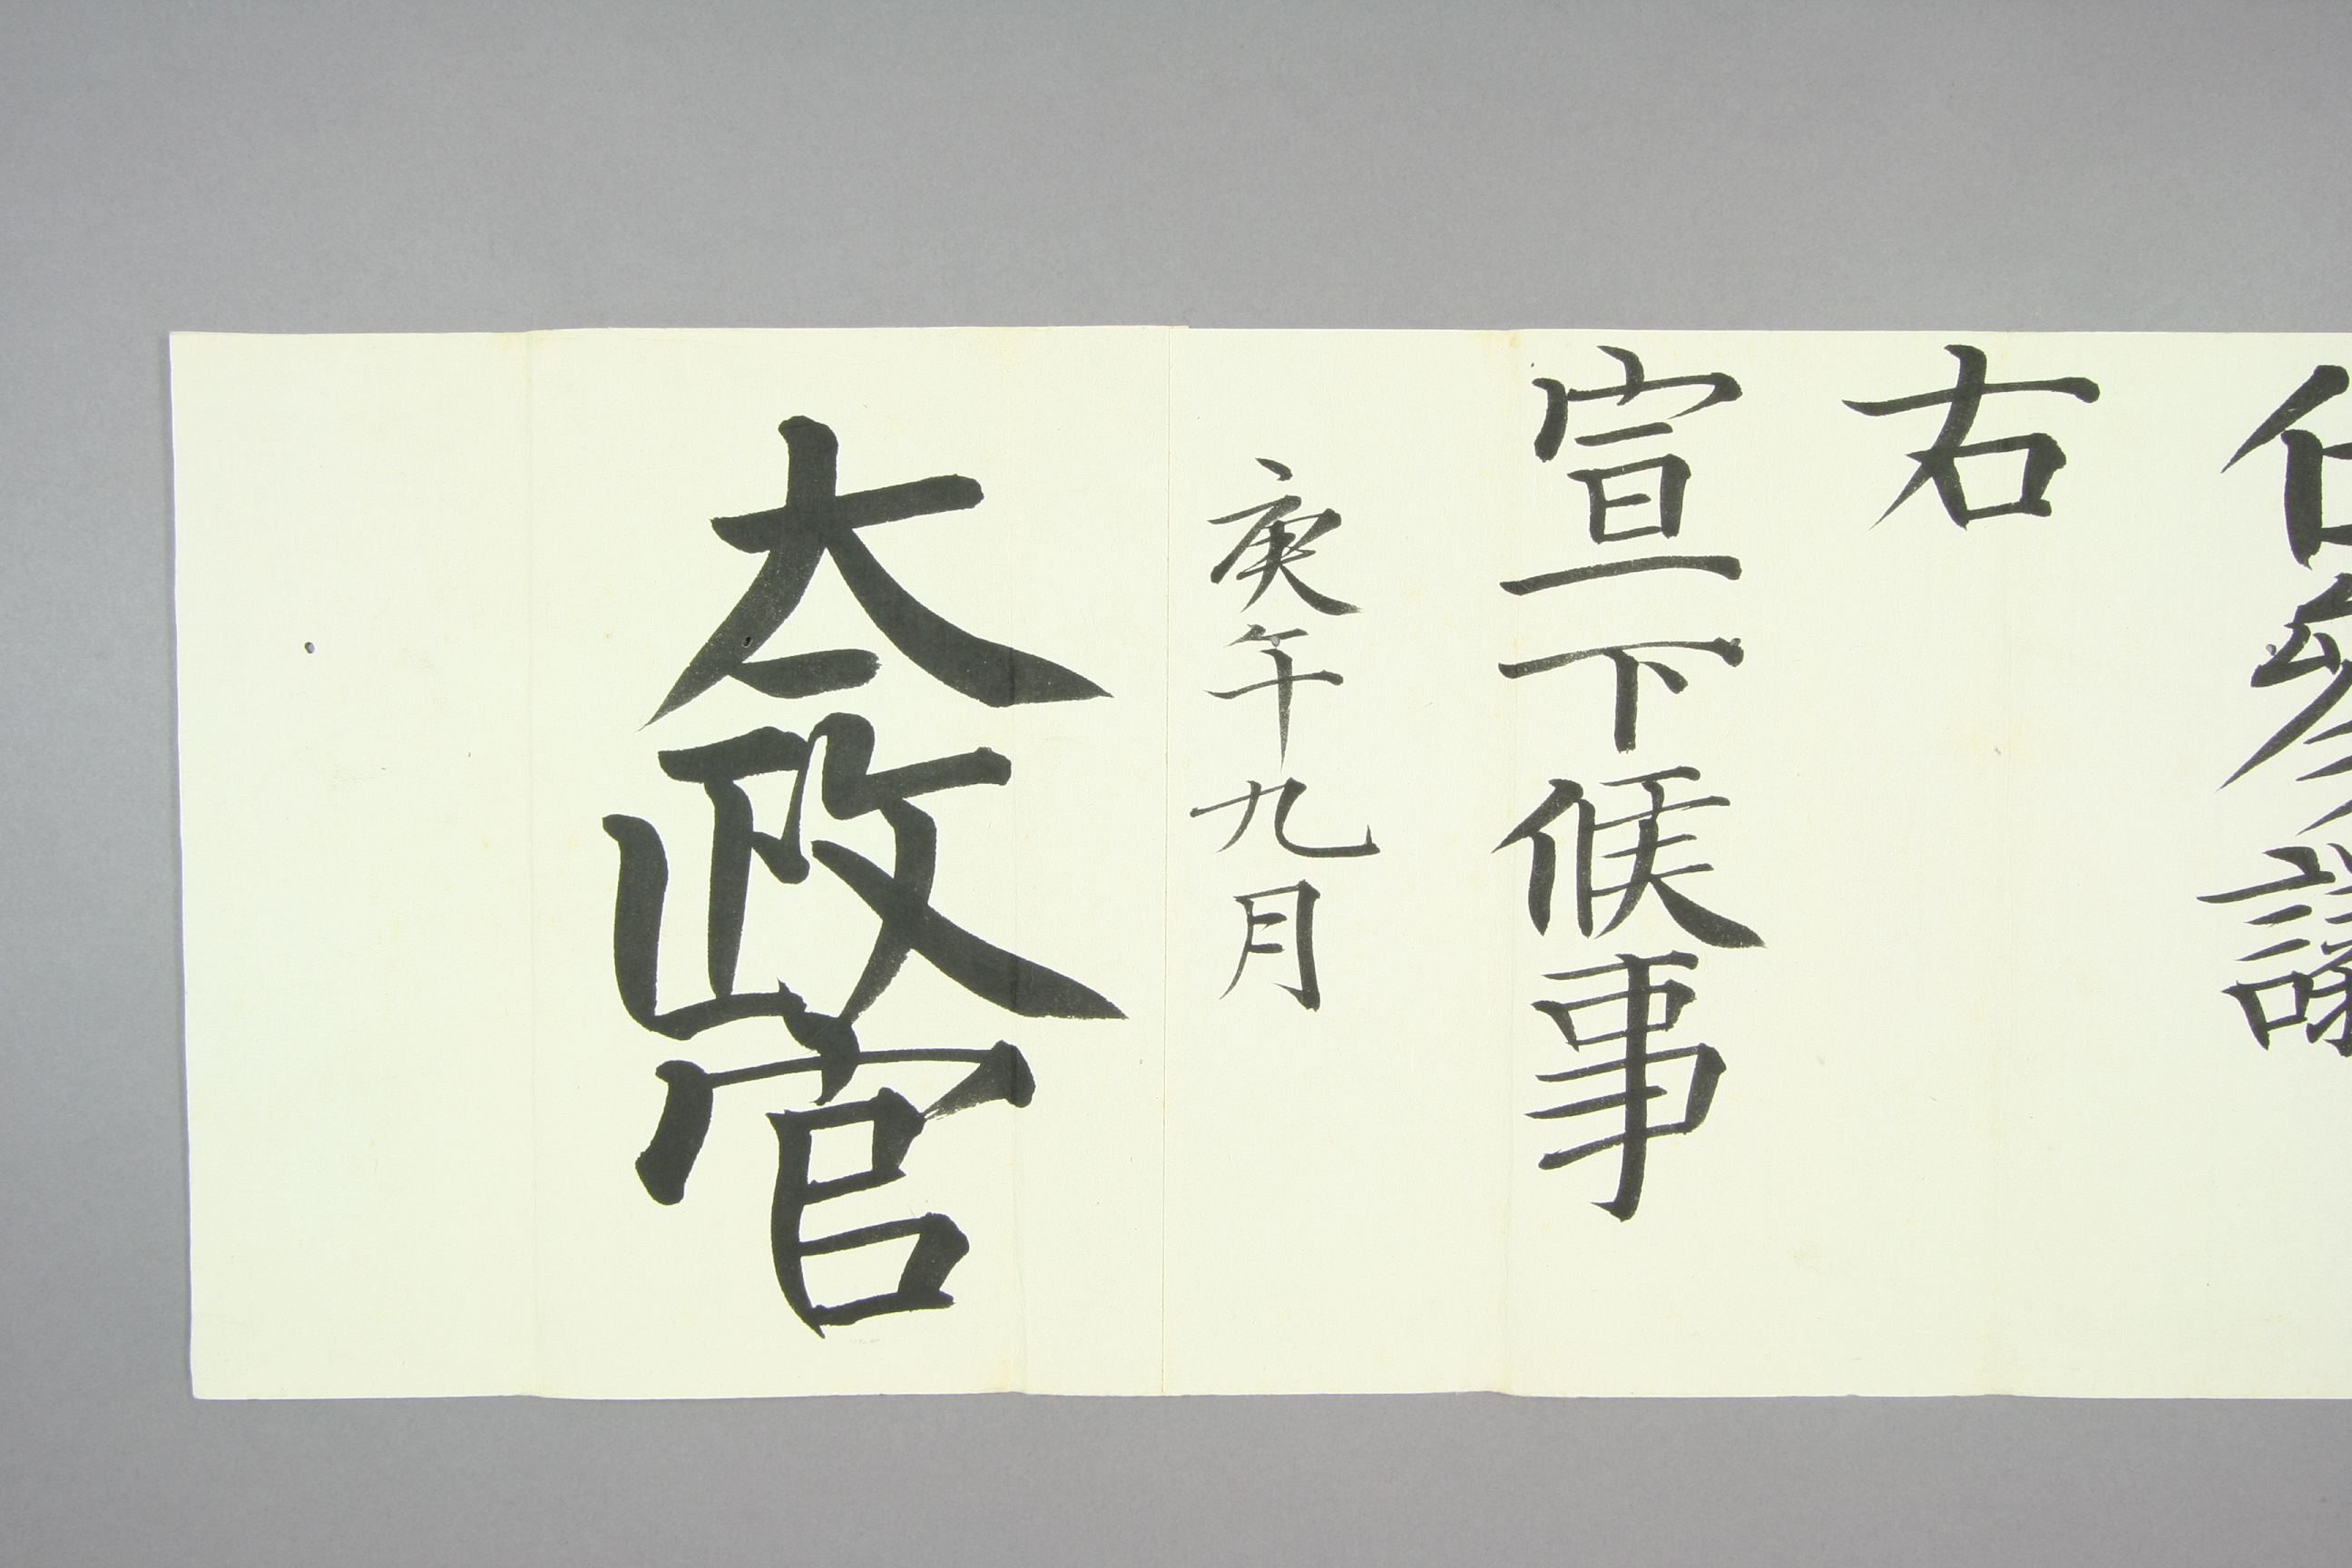 任参議
右
宣下候事
庚午九月
太政官